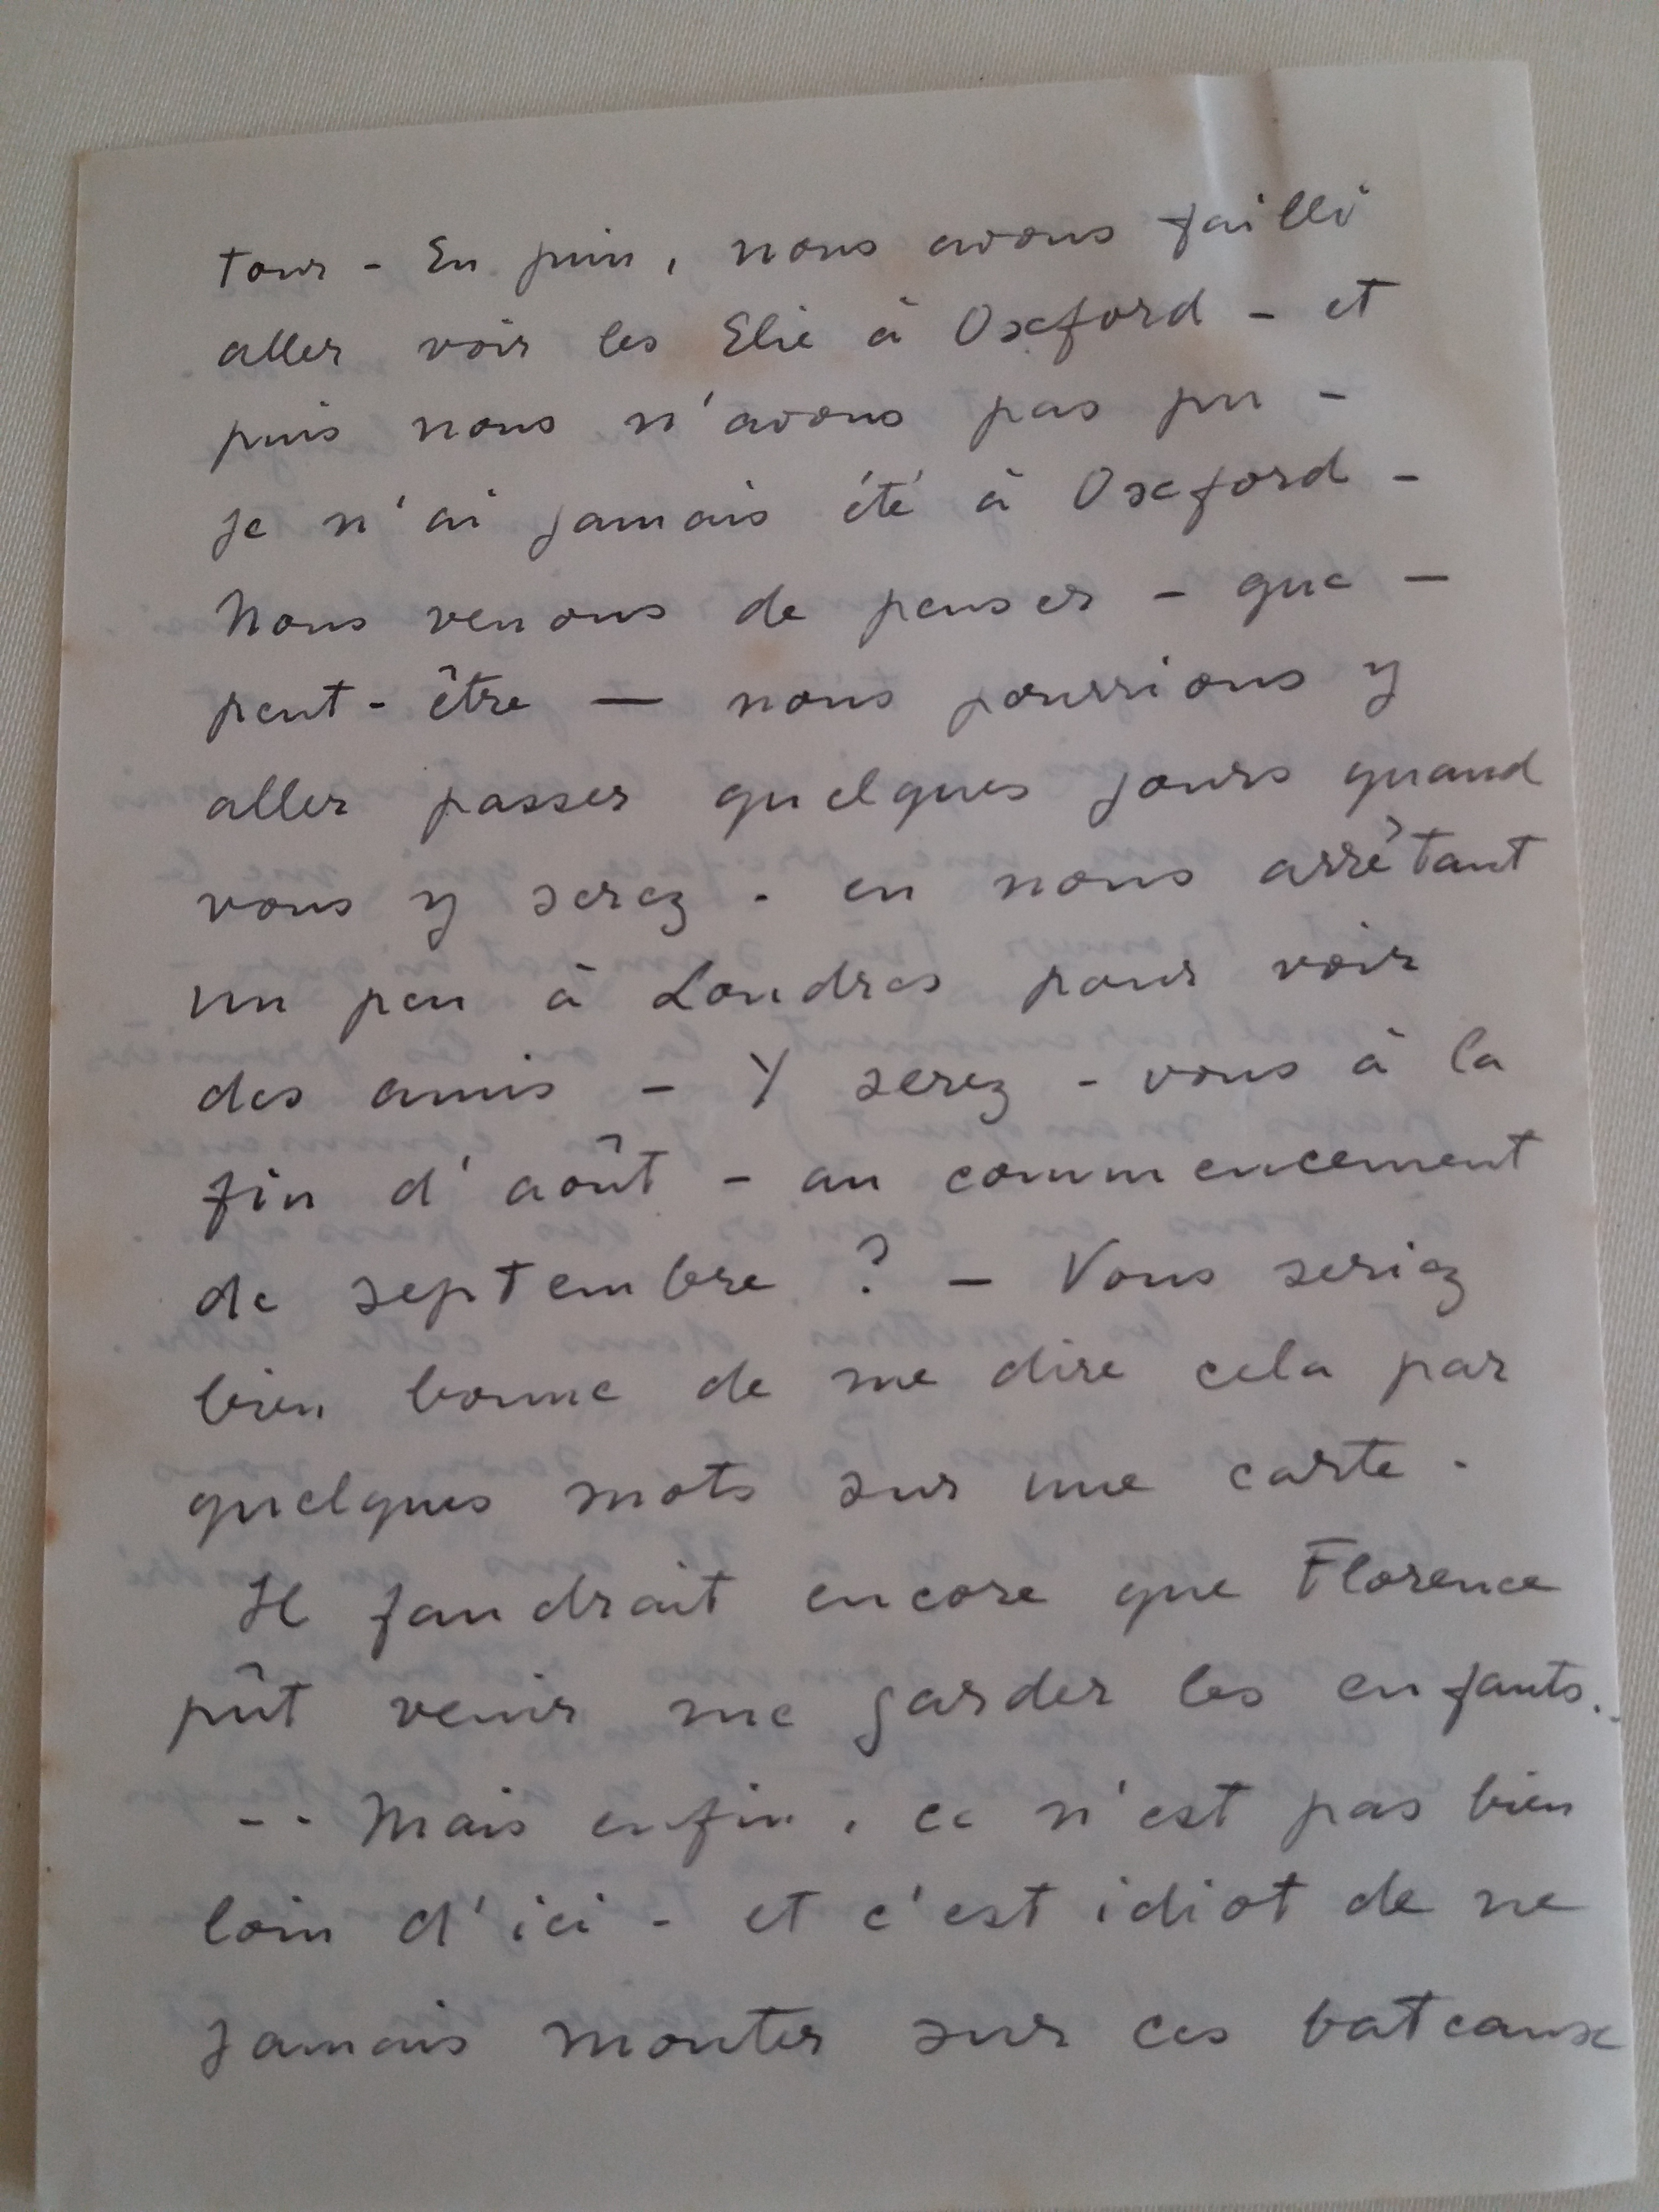 tour - En juin, nous avons failli
aller voir les Elie à Oxford - et
puis nous n'avons pas pu -
je n'ai jamais été à Oxford -
Nous venons de penser - que -
peut-être — nous pourrions y
aller passer quelques jours quand
vous y serez - en nous arrêtant
un peu à Londres pour voir
des amis - Y serez-vous à la
fin d'août - au commencement
de septembre ? - Vous seriez
bien bonne de me dire cela par
quelques mots sur une carte -
Il faudrait encore que Florence
pût venir me garder les enfants..
-- Mais enfin, ce n'est pas bien
loin d'ici - et c'est idiot de ne
jamais monter sur ces bateaux